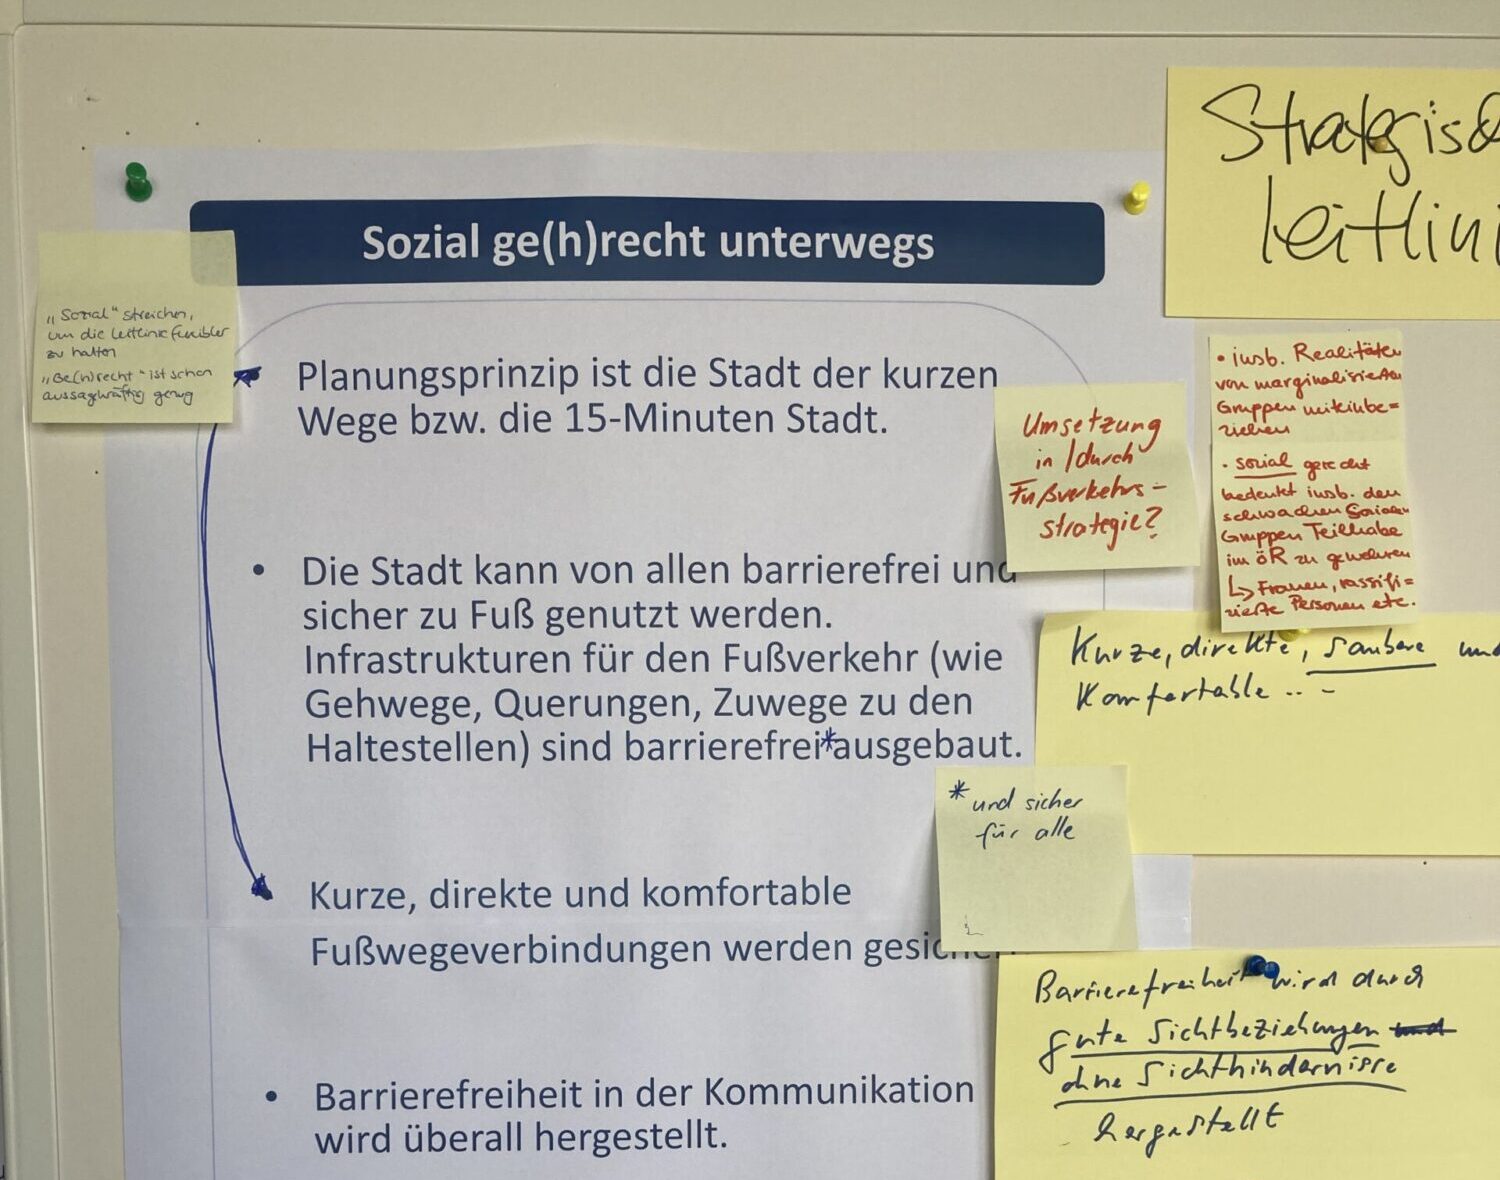 Strategisch
Leitlini
Sozial ge(h)recht unterwegs
„Sozial" streichen,
um die Leitlinie flexibler
zu halten
„Ge(h)recht" ist schon
aussagekräftig genug
Planungsprinzip ist die Stadt der kurzen
Wege bzw. die 15-Minuten Stadt.
• Die Stadt kann von allen barrierefrei und
sicher zu Fuß genutzt werden.
Infrastrukturen für den Fußverkehr (wie
Gehwege, Querungen, Zuwege zu den
Haltestellen) sind barrierefrei*ausgebaut.
Kurze, direkte und komfortable
Fußwegeverbindungen werden
• Barrierefreiheit in der Kommunikation
wird überall hergestellt.
Umsetzung
in/durch
Fußverkehrs-
strategie?
• insb. Realitäten
von marginalisierten
Gruppen miteinbe=
ziehen
• sozial gerecht
bedeutet insb. den
schwachen Sozialen
Gruppen Teilhabe
im öR zu gewähren
↳ Frauen, rassifi=
zierte Personen etc.
Kurze, direkte, saubere und
Komfortable ...
* und sicher
für alle
Barrierefreiheit wird durch
gute Sichtbeziehungen
ohne Sichthindernisse
hergestellt